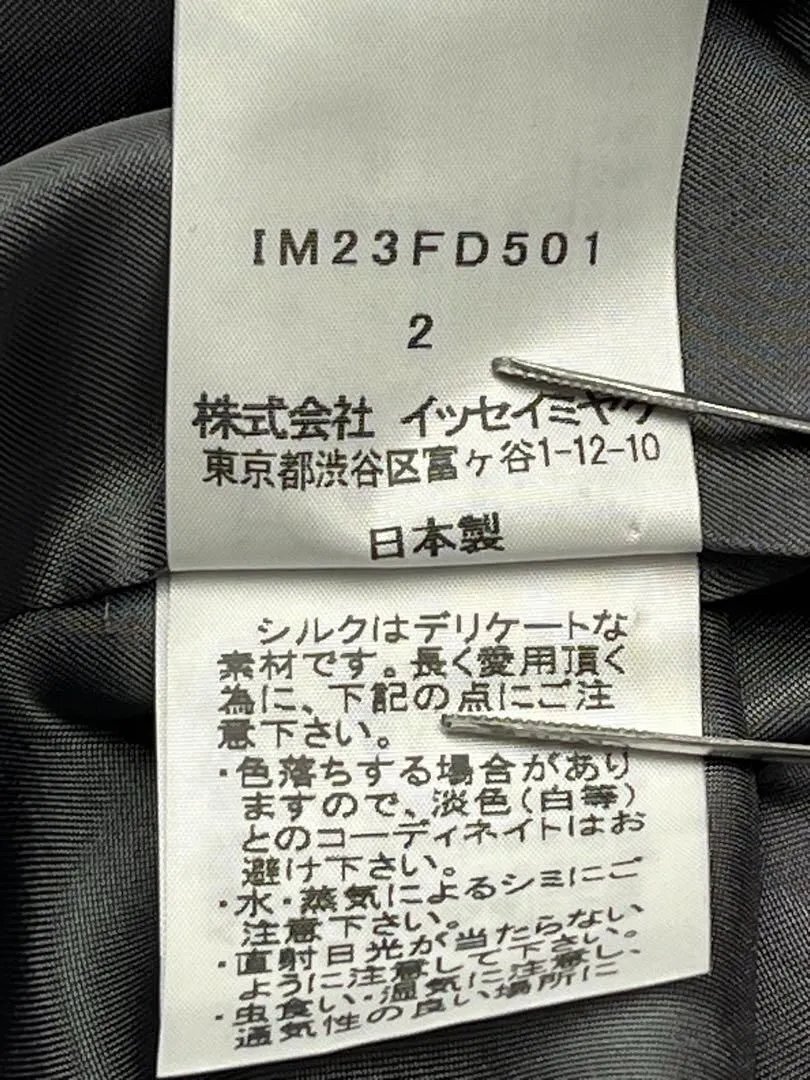 IM23FD501
2
株式会社 イッセイミヤケ
東京都渋谷区富ヶ谷1-12-10
日本製
シルクはデリケートな
素材です。長く愛用頂く
為に、下記の点にご注
意下さい。
・色落ちする場合があり
ますので、淡色(白等)
とのコーディネイトはお
避け下さい。
・水・蒸気によるシミにご
注意下さい。
・直射日光が当たらない
ように注意して下さい。
・虫食い・湿気に注意し、
通気性の良い場所に